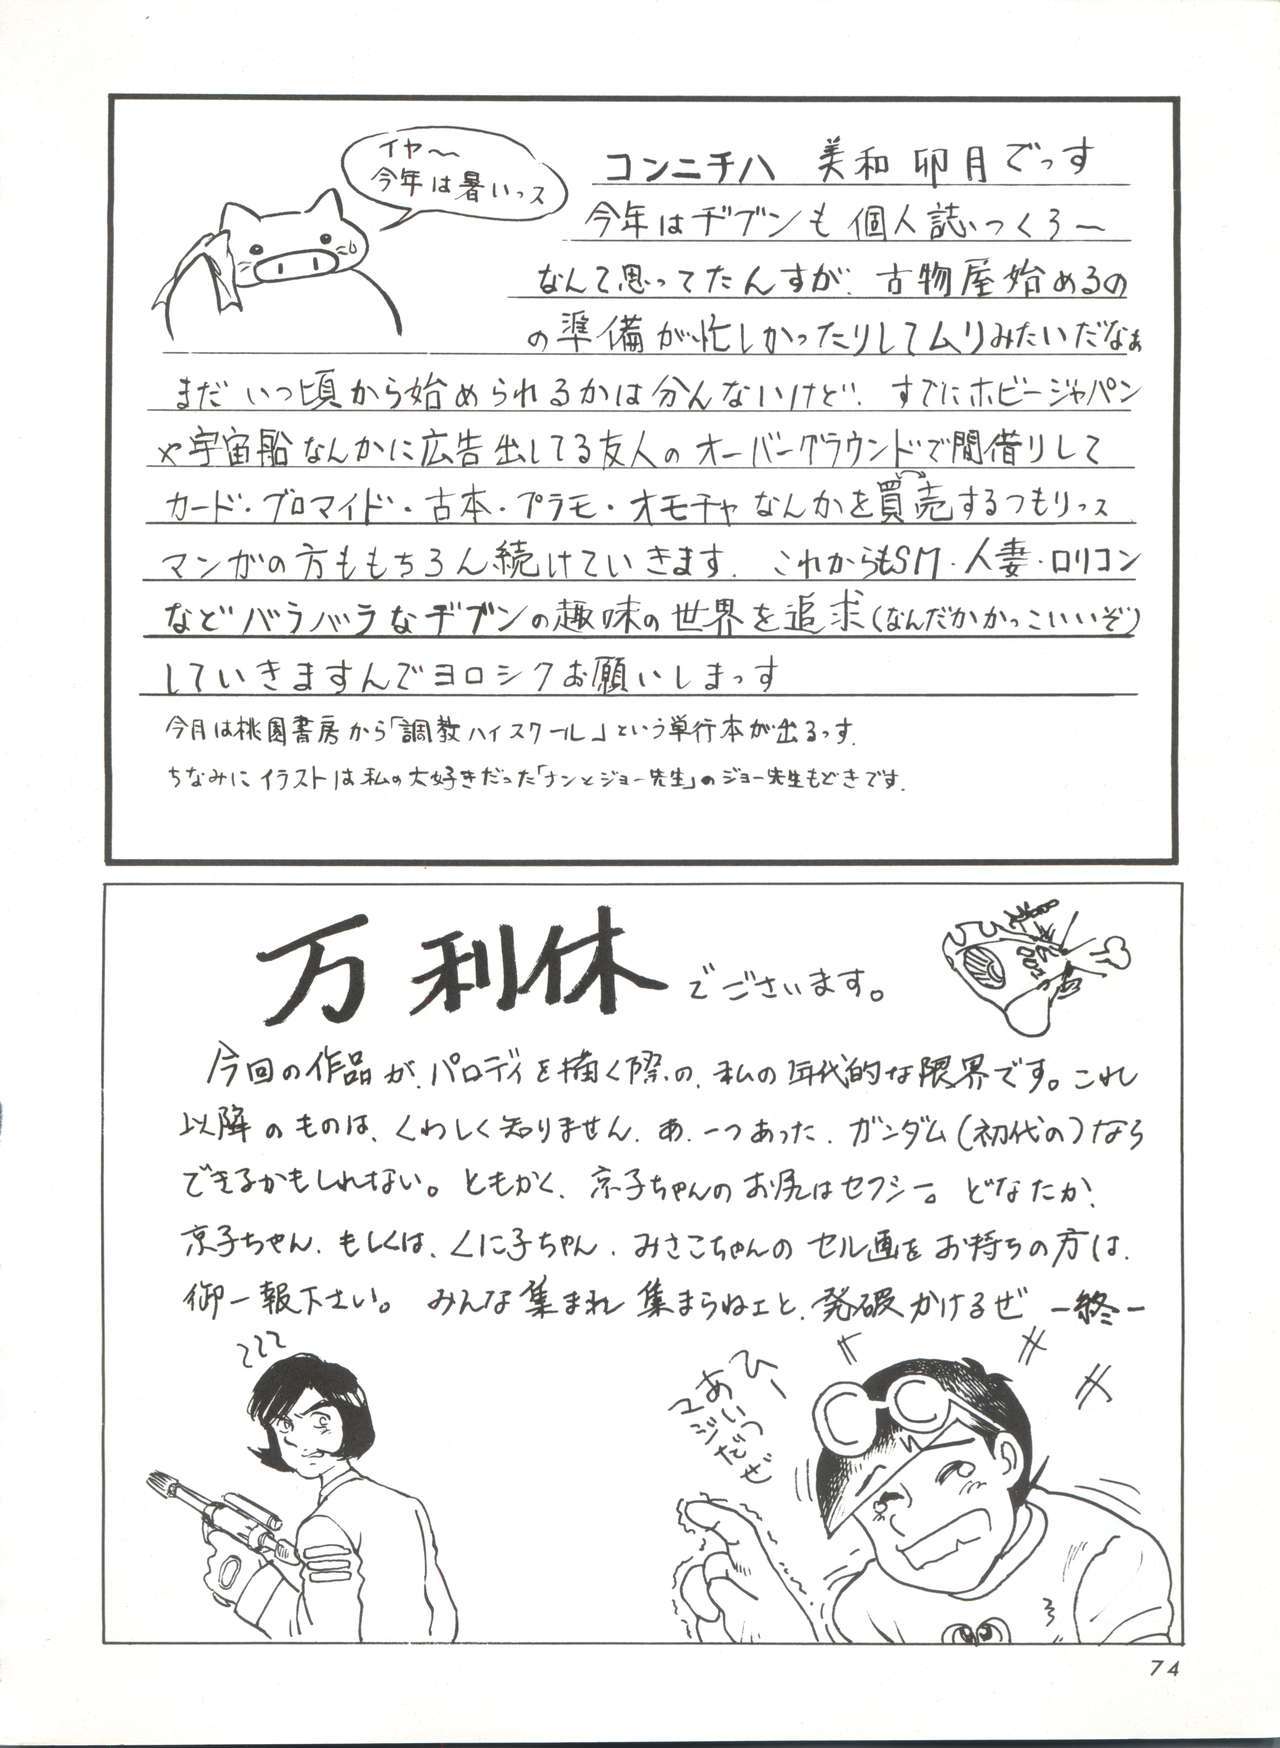 イヤ〜
今年は暑いっス
コンニチハ 美和卯月でっす
今年はヂブンも個人誌つくろ〜
なんて思ってたんすが、古物屋始めるの
の準備が忙しかったりしてムリみたいだなぁ
まだいつ頃から始められるかは分んないけど、すでにホビージャパン
や宇宙船なんかに広告出してる友人のオーバーグラウンドで間借りして
カード・ブロマイド・古本・プラモ・オモチャなんかを買売するつもりっス
マンガの方ももちろん続けていきます。これからもSM・人妻・ロリコン
などバラバラなヂブンの趣味の世界を追求(なんだかかっこいいぞ)
していきますんでヨロシクお願いしまっす
今月は桃園書房から「調教ハイスクール」という単行本が出るっす。
ちなみにイラストは私の大好きだった「ナンとジョー先生」のジョー先生もどきです。
万利休でございます。
今回の作品が、パロディを描く際の、私の年代的な限界です。これ
以降のものは、くわしく知りません。あ、一つあった、ガンダム(初代の)なら
できるかもしれない。ともかく、京子ちゃんのお尻はセクシー。どなたか、
京子ちゃん、もしくは、くに子ちゃん、みさこちゃんのセル画をお持ちの方は、
御一報下さい。みんな集まれ 集まらねェと、発破かけるぜ −終−
ひー
あいつ
マジだぜ
74